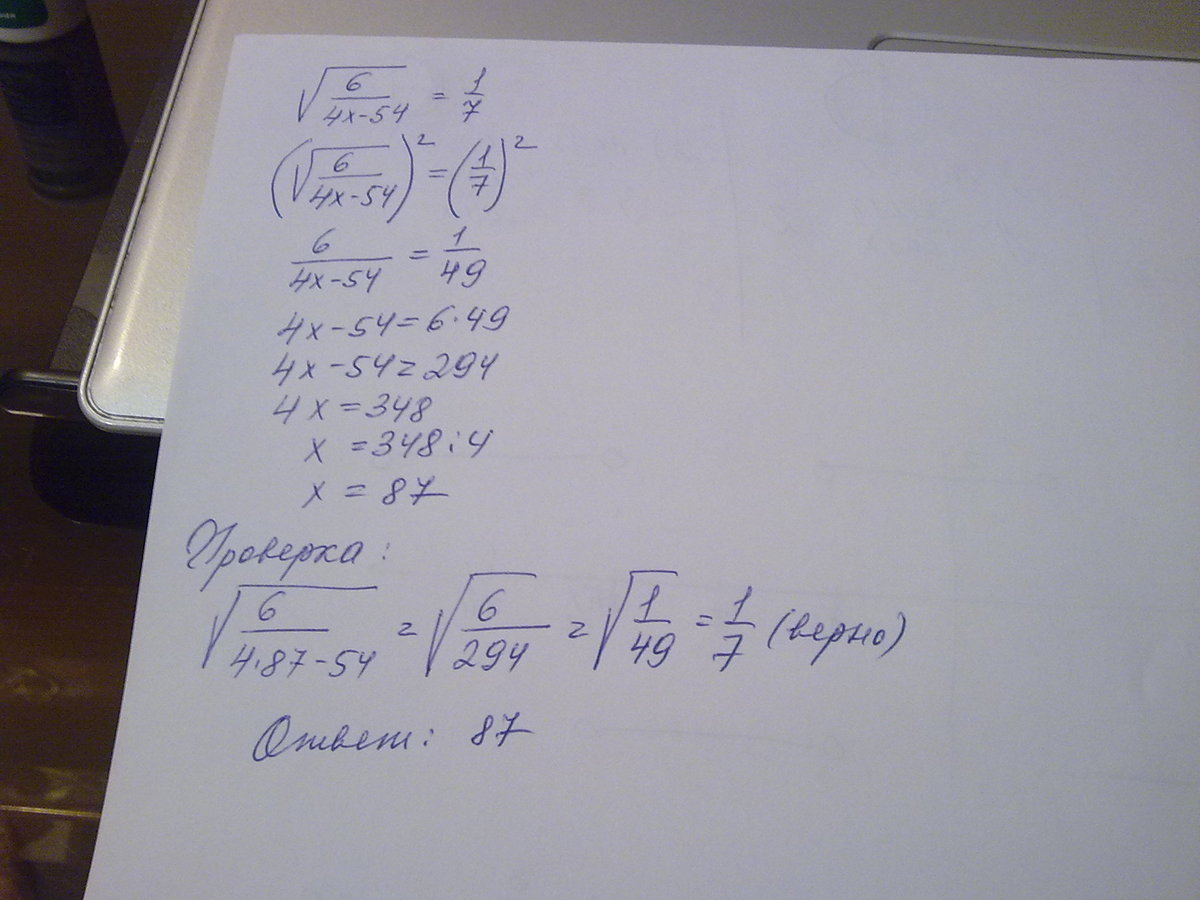 √(6/(4x-54)) = 1/7
(√(6/(4x-54)))² = (1/7)²
6/(4x-54) = 1/49
4x-54=6·49
4x-54=294
4x=348
x=348:4
x=87
Проверка:
√(6/(4·87-54)) = √(6/294) = √(1/49) = 1/7 (верно)
Ответ: 87